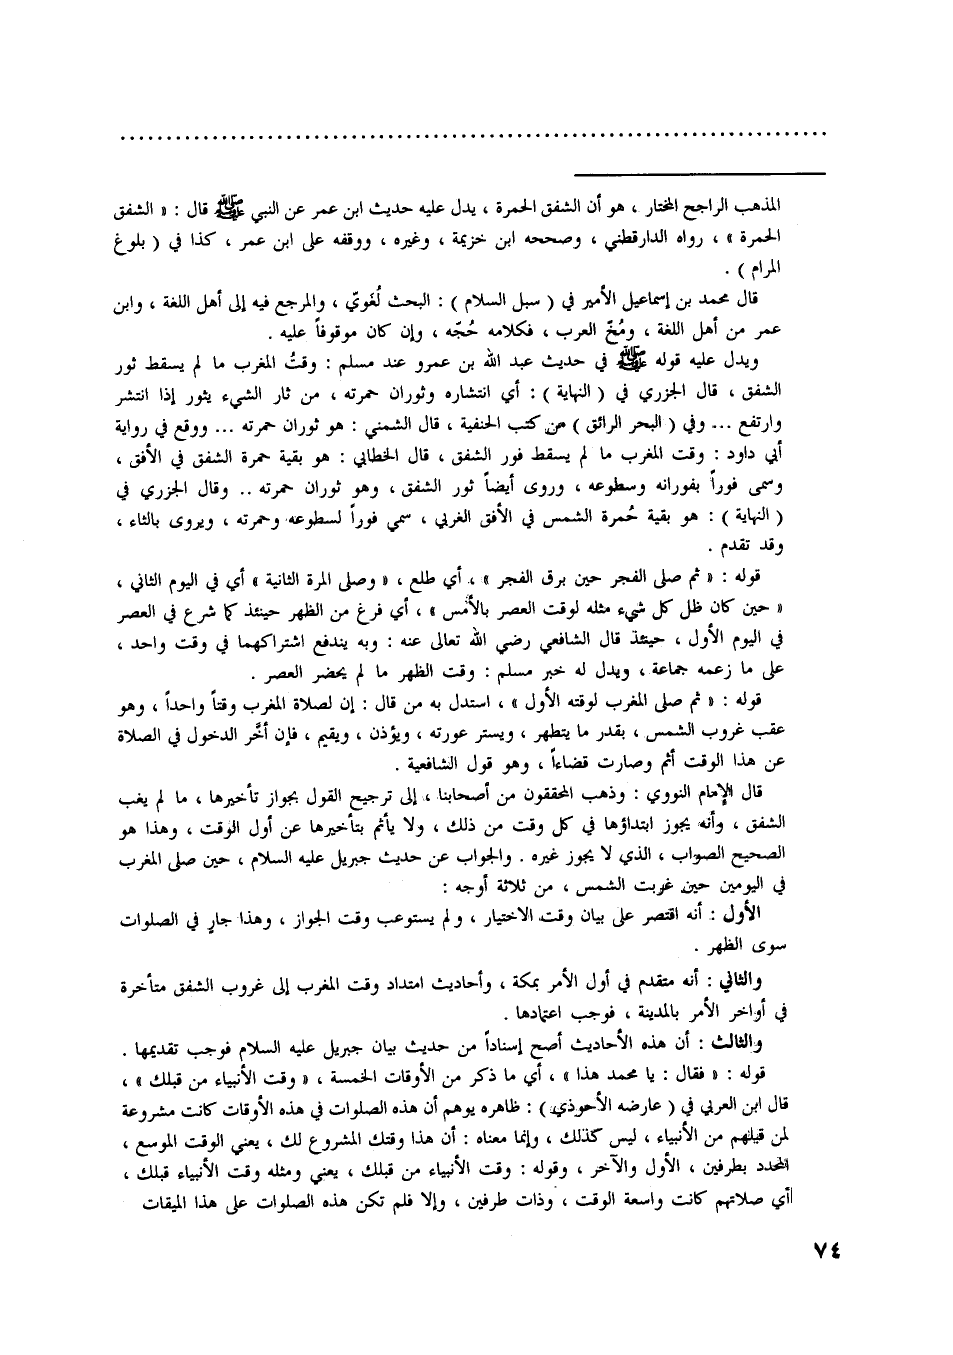 المذهب الراجح المختار ، هو أن الشفق الحمرة ، يدل عليه حديث ابن عمر عن النبي ﷺ قال : « الشفق
الحمرة » ، رواه الدارقطني ، وصححه ابن خزيمة ، وغيره ، ووقفه على ابن عمر ، كذا في ( بلوغ
المرام ) .
قال محمد بن إسماعيل الأمير في ( سبل السلام ) : البحث لُغَويّ ، والمرجع فيه إلى أهل اللغة ، وابن
عمر من أهل اللغة ، ومُخّ العرب ، فكلامه حُجّه ، وإن كان موقوفاً عليه .
ويدل عليه قوله ﷺ في حديث عبد الله بن عمرو عند مسلم : وقتُ المغرب ما لم يسقط ثور
الشفق ، قال الجزري في ( النهاية ) : أي انتشاره وثوران حمرته ، من ثار الشيء يثور إذا انتشر
وارتفع ... وفي ( البحر الرائق ) من كتب الحنفية ، قال الشمني : هو ثوران حمرته ... ووقع في رواية
أبي داود : وقت المغرب ما لم يسقط فور الشفق ، قال الخطابي : هو بقية حمرة الشفق في الأفق ،
وسمى فوراً بفورانه وسطوعه ، وروى أيضاً ثور الشفق ، وهو ثوران حمرته .. وقال الجزري في
( النهاية ) : هو بقية حُمرة الشمس في الأفق الغربي ، سمي فوراً لسطوعه وحمرته ، ويروى بالثاء ،
وقد تقدم .
قوله : « ثم صلى الفجر حين برق الفجر » ، أي طلع ، « وصلى المرة الثانية » أي في اليوم الثاني ،
« حين كان ظل كل شيء مثله لوقت العصر بالأمس » ، أي فرغ من الظهر حينئذ كما شرع في العصر
في اليوم الأول ، حينئذ قال الشافعي رضي الله تعالى عنه : وبه يندفع اشتراكهما في وقت واحد ،
على ما زعمه جماعة ، ويدل له خبر مسلم : وقت الظهر ما لم يحضر العصر .
قوله : « ثم صلى المغرب لوقته الأول » ، استدل به من قال : إن لصلاة المغرب وقتاً واحداً ، وهو
عقب غروب الشمس ، بقدر ما يتطهر ، ويستر عورته ، ويؤذن ، ويقيم ، فإن أخَّر الدخول في الصلاة
عن هذا الوقت أثم وصارت قضاءاً ، وهو قول الشافعية .
قال الإمام النووي : وذهب المحققون من أصحابنا ، إلى ترجيح القول بجواز تأخيرها ، ما لم يغب
الشفق ، وأنه يجوز ابتداؤها في كل وقت من ذلك ، ولا يأثم بتأخيرها عن أول الوقت ، وهذا هو
الصحيح الصواب ، الذي لا يجوز غيره . والجواب عن حديث جبريل عليه السلام ، حين صلى المغرب
في اليومين حين غربت الشمس ، من ثلاثة أوجه :
الأول : أنه اقتصر على بيان وقت الاختيار ، ولم يستوعب وقت الجواز ، وهذا جارٍ في الصلوات
سوى الظهر .
والثاني : أنه متقدم في أول الأمر بمكة ، وأحاديث امتداد وقت المغرب إلى غروب الشفق متأخرة
في أواخر الأمر بالمدينة ، فوجب اعتمادها .
والثالث : أن هذه الأحاديث أصح إسناداً من حديث بيان جبريل عليه السلام فوجب تقديمها .
قوله : « فقال : يا محمد هذا » ، أي ما ذكر من الأوقات الخمسة ، « وقت الأنبياء من قبلك » ،
قال ابن العربي في ( عارضه الأحوذي ) : ظاهره يوهم أن هذه الصلوات في هذه الأوقات كانت مشروعة
لمن قبلهم من الأنبياء ، ليس كذلك ، وإنما معناه : أن هذا وقتك المشروع لك ، يعني الوقت الموسع ،
المحدد بطرفين ، الأول والآخر ، وقوله : وقت الأنبياء من قبلك ، يعني ومثله وقت الأنبياء قبلك ،
أي صلاتهم كانت واسعة الوقت ، وذات طرفين ، وإلا فلم تكن هذه الصلوات على هذا الميقات
٧٤